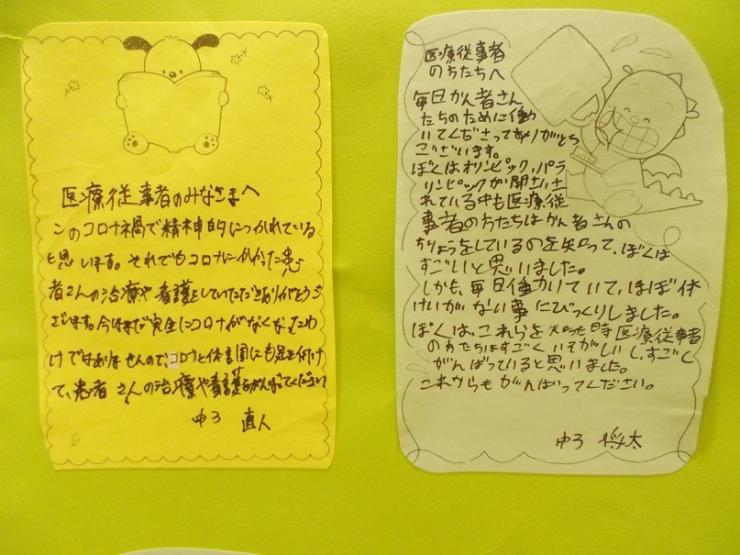 医療従事者のみなさまへ
このコロナ禍で精神的につかれている
と思います。それでもコロナにかかった患
者さんの治療や看護をしていただきありがとうご
ざいます。今はまだ完全にコロナがなくなったわ
けではありませんので、コロナと体調にも気を付け
て、患者さんの治療や看護をがんばってください
中3 直人
医療従事者
のかたちへ
毎日かん者さん
たちのために働
いてくださってありがとう
ございます。
ぼくはオリンピック、パラ
リンピックが開さいさ
れている中も医療従
事者のかたちはかん者さんの
ちりょうをしているのを知って、ぼくは
すごいと思いました。
しかも、毎日働いていて、ほぼ休
けいがない事にびっくりしました。
ぼくは、これらを知った時医療従事者
のかたちはすごくいそがしいし、すごく
がんばっていると思いました。
これからもがんばってください。
中3 将太